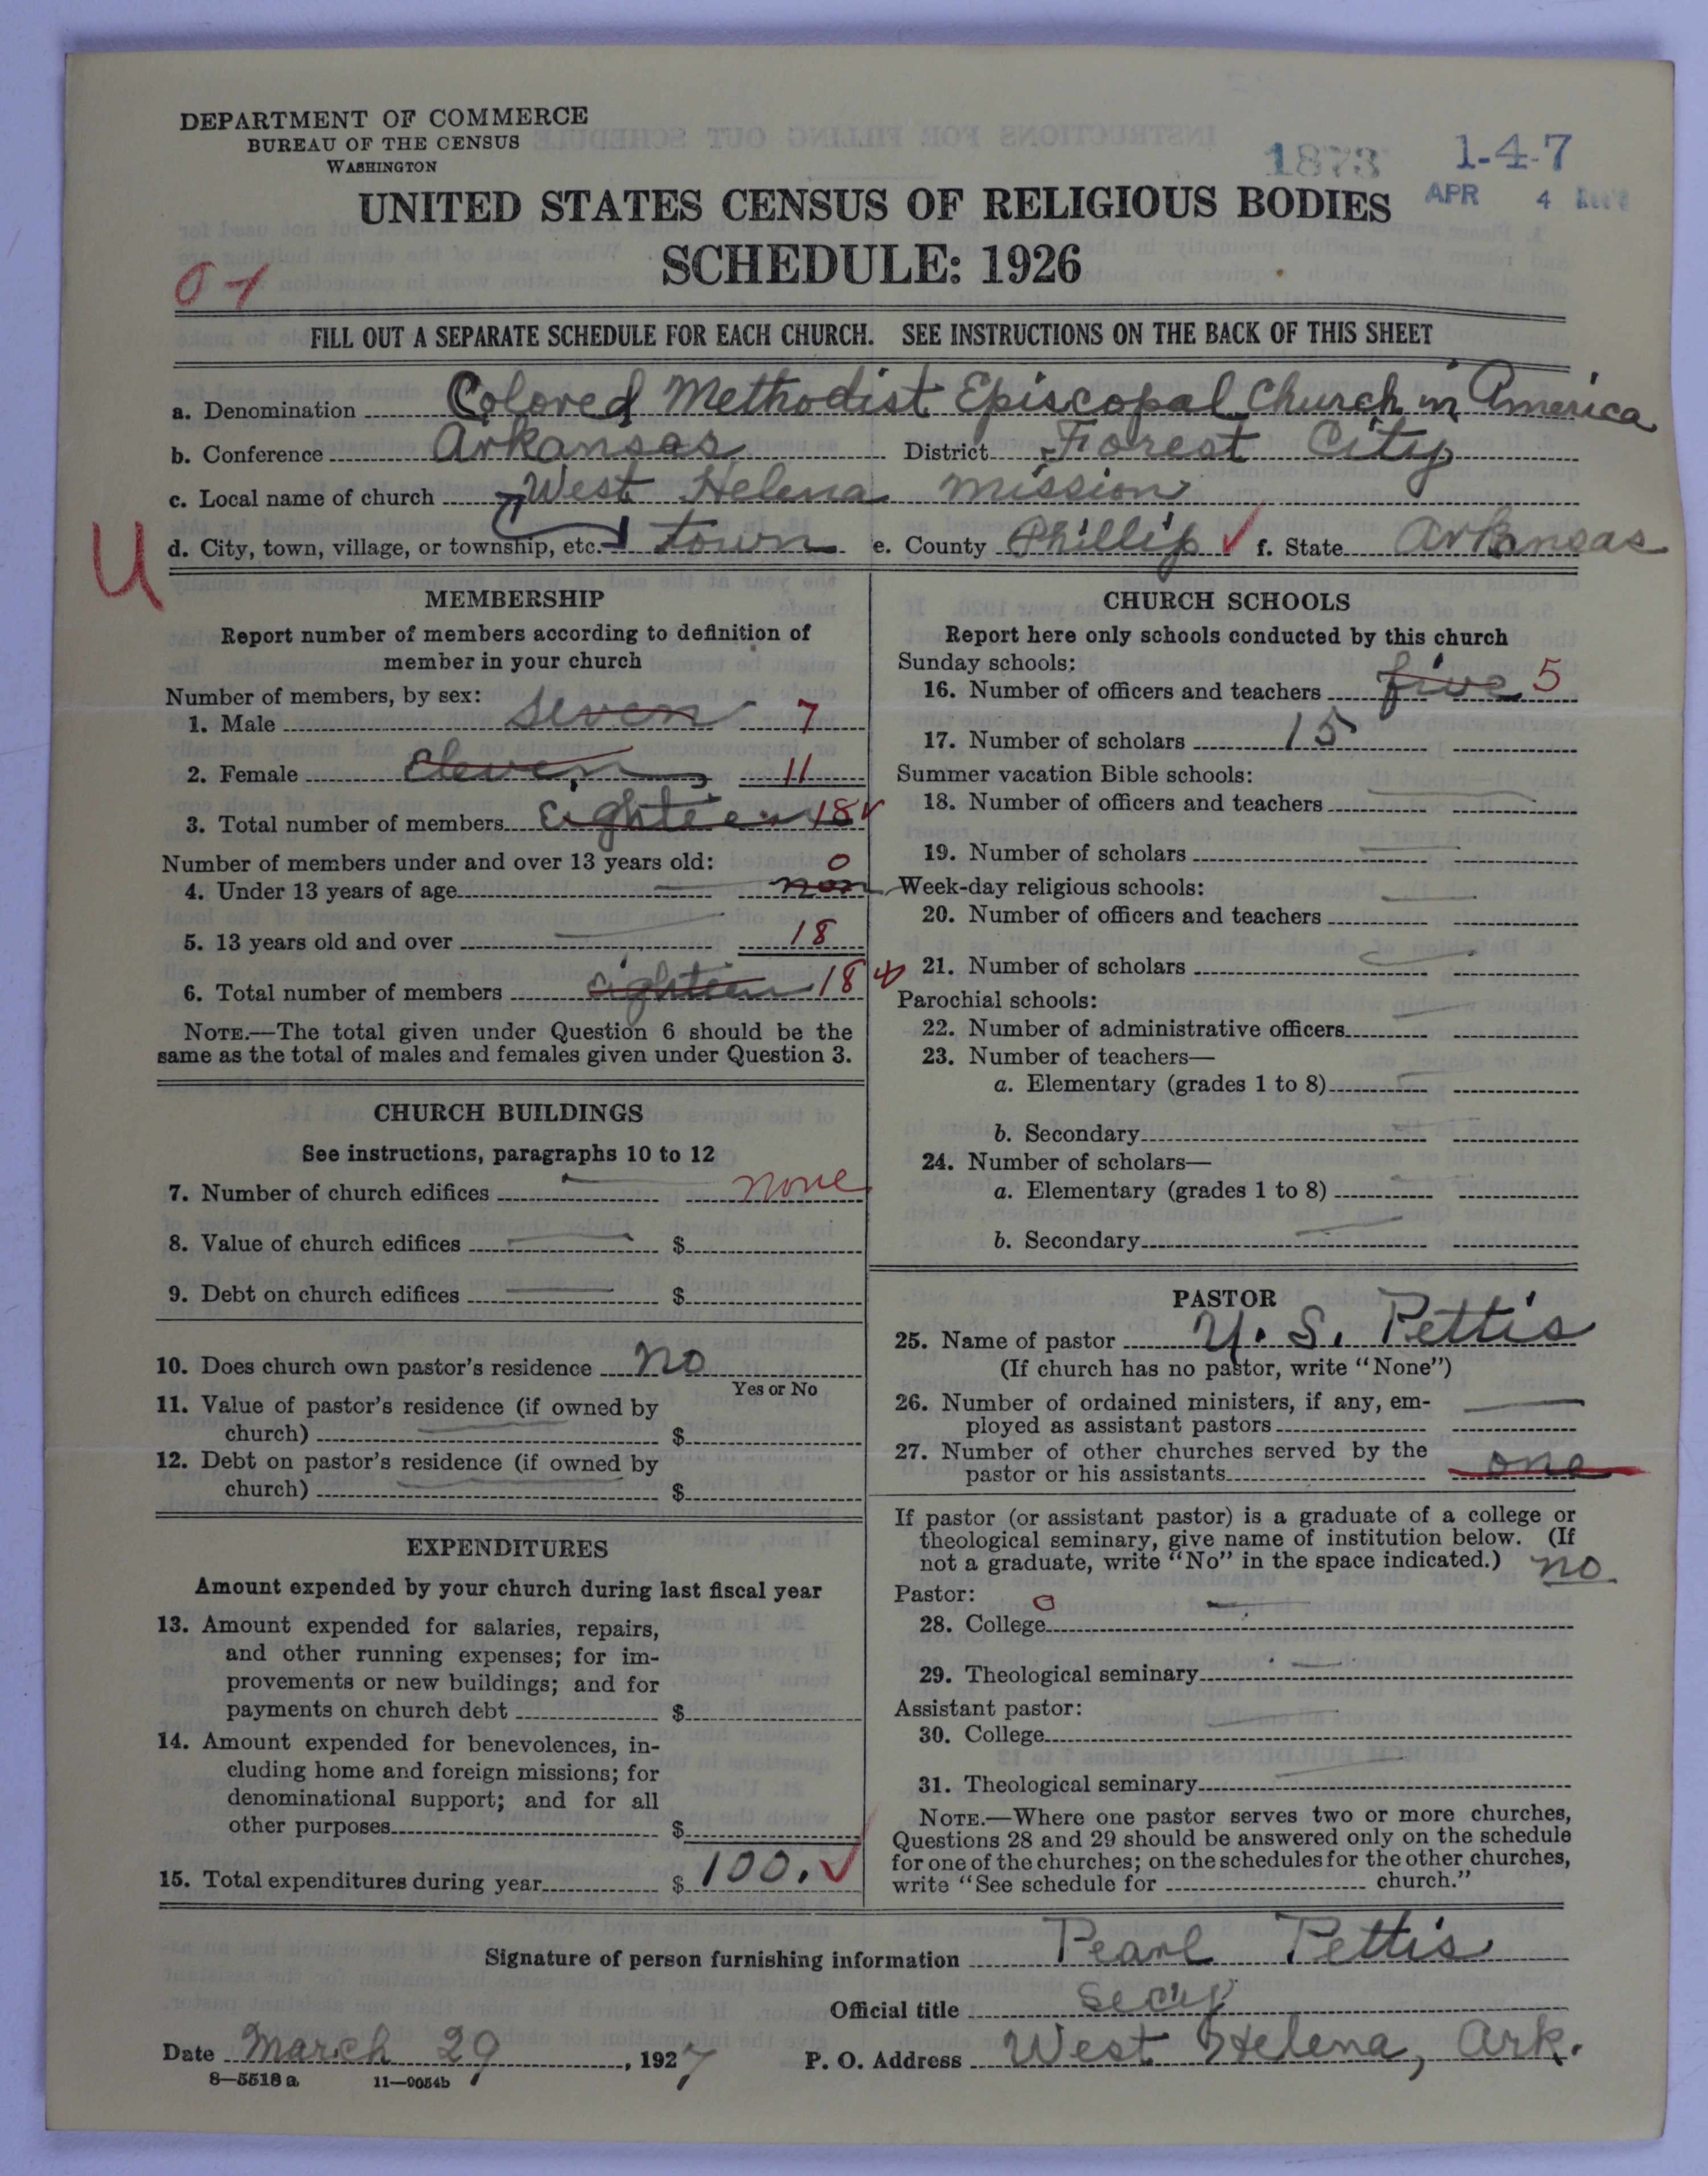 DEPARTMENT OF COMMERCE
BUREAU OF THE CENSUS
WASHINGTON
1873
1-4-7
APR 4 Rec'd
UNITED STATES CENSUS OF RELIGIOUS BODIES
SCHEDULE: 1926
FILL OUT A SEPARATE SCHEDULE FOR EACH CHURCH. SEE INSTRUCTIONS ON THE BACK OF THIS SHEET
a. Denomination Colored Methodist Episcopal Church in America
b. Conference Arkansas District Forest City
c. Local name of church West Helena mission
U
d. City, town, village, or township, etc. town e. County Phillip ✓ f. State Arkansas
MEMBERSHIP
Report number of members according to definition of
member in your church
Number of members, by sex:
1. Male seven 7
2. Female eleven 11
3. Total number of members eighteen 18 ✓
Number of members under and over 13 years old:
0
4. Under 13 years of age non
5. 13 years old and over 18
6. Total number of members eighteen 18
NOTE.—The total given under Question 6 should be the
same as the total of males and females given under Question 3.
CHURCH BUILDINGS
See instructions, paragraphs 10 to 12
7. Number of church edifices none
8. Value of church edifices $
9. Debt on church edifices $
10. Does church own pastor's residence no
Yes or No
11. Value of pastor's residence (if owned by
church) $
12. Debt on pastor's residence (if owned by
church) $
EXPENDITURES
Amount expended by your church during last fiscal year
13. Amount expended for salaries, repairs,
and other running expenses; for im-
provements or new buildings; and for
payments on church debt $
14. Amount expended for benevolences, in-
cluding home and foreign missions; for
denominational support; and for all
other purposes $
15. Total expenditures during year $ 100. ✓
CHURCH SCHOOLS
Report here only schools conducted by this church
Sunday schools:
16. Number of officers and teachers five 5
17. Number of scholars 15
Summer vacation Bible schools:
18. Number of officers and teachers
19. Number of scholars
Week-day religious schools:
20. Number of officers and teachers
21. Number of scholars
Parochial schools:
22. Number of administrative officers
23. Number of teachers—
a. Elementary (grades 1 to 8)
b. Secondary
24. Number of scholars—
a. Elementary (grades 1 to 8)
b. Secondary
PASTOR
25. Name of pastor U. S. Pettis
(If church has no pastor, write "None")
26. Number of ordained ministers, if any, em-
ployed as assistant pastors
27. Number of other churches served by the
pastor or his assistants one
If pastor (or assistant pastor) is a graduate of a college or
theological seminary, give name of institution below. (If
not a graduate, write "No" in the space indicated.) no
Pastor: 0
28. College
29. Theological seminary
Assistant pastor:
30. College
31. Theological seminary
NOTE.—Where one pastor serves two or more churches,
Questions 28 and 29 should be answered only on the schedule
for one of the churches; on the schedules for the other churches,
write "See schedule for church."
Signature of person furnishing information Pearl Pettis
Official title Secy
Date March 29, 1927 P. O. Address West Helena, Ark.
8—5518 a 11—9054b